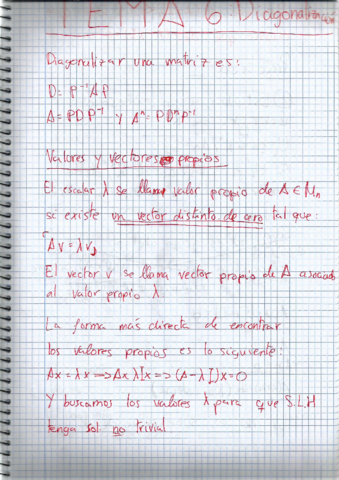 TEMA 6: Diagonalización
Diagonalizar una matriz es:
D = P⁻¹AP
A = PDP⁻¹ y Aⁿ = PDⁿP⁻¹
Valores y vectores propios
El escalar λ se llama valor propio de A ∈ Mn
si existe un vector distinto de cero tal que:
Av = λv,
El vector v se llama vector propio de A asociado
al valor propio λ
La forma más directa de encontrar
los valores propios es lo siguiente:
Ax = λx => Ax λIx => (A - λI)x = 0
Y buscamos los valores λ para que S.L.H
tenga sol. no trivial